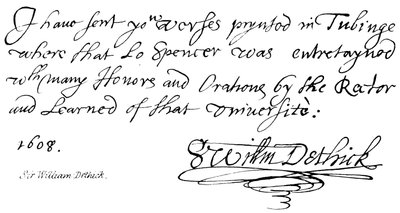 I have sent yow verses prynted in Tubinge
where that Lo Spencer was entretayned
wth many Honors and Orations by the Rector
and Learned of that Universitè:
1608.
Sir William Dethick.
Willm Dethick